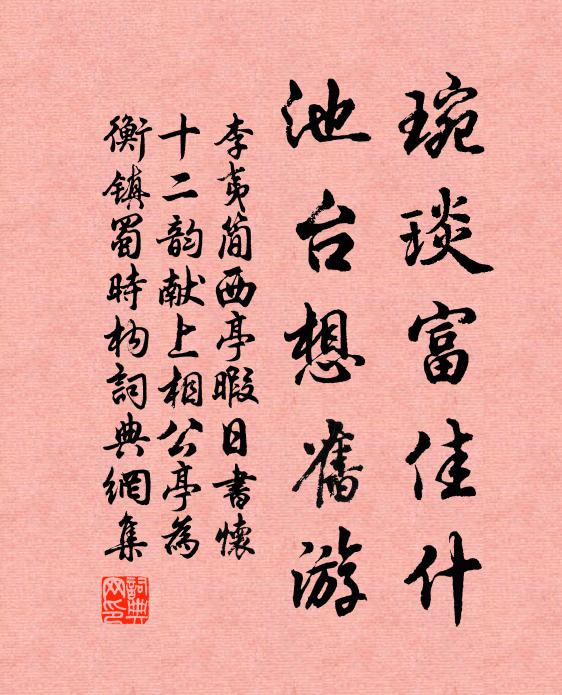 琬琰富佳什
池台想舊游
李夷简西亭暇日書懷
十二韵献上相公亭為
衡鎮蜀時构詞典網集
詞典网印